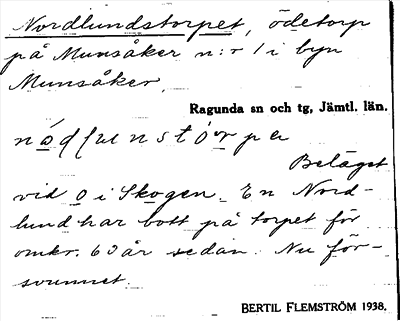 Nordlundstorpet, ödetorp
på Munsåker n:r 1 i byn
Munsåker.
Ragunda sn och tg, Jämtl. län.
Beläget
vid o i Skogen. En Nord-
lund har bott på torpet för
omkr. 60 år sedan. Nu för-
svunnet.
BERTIL FLEMSTRÖM 1938.